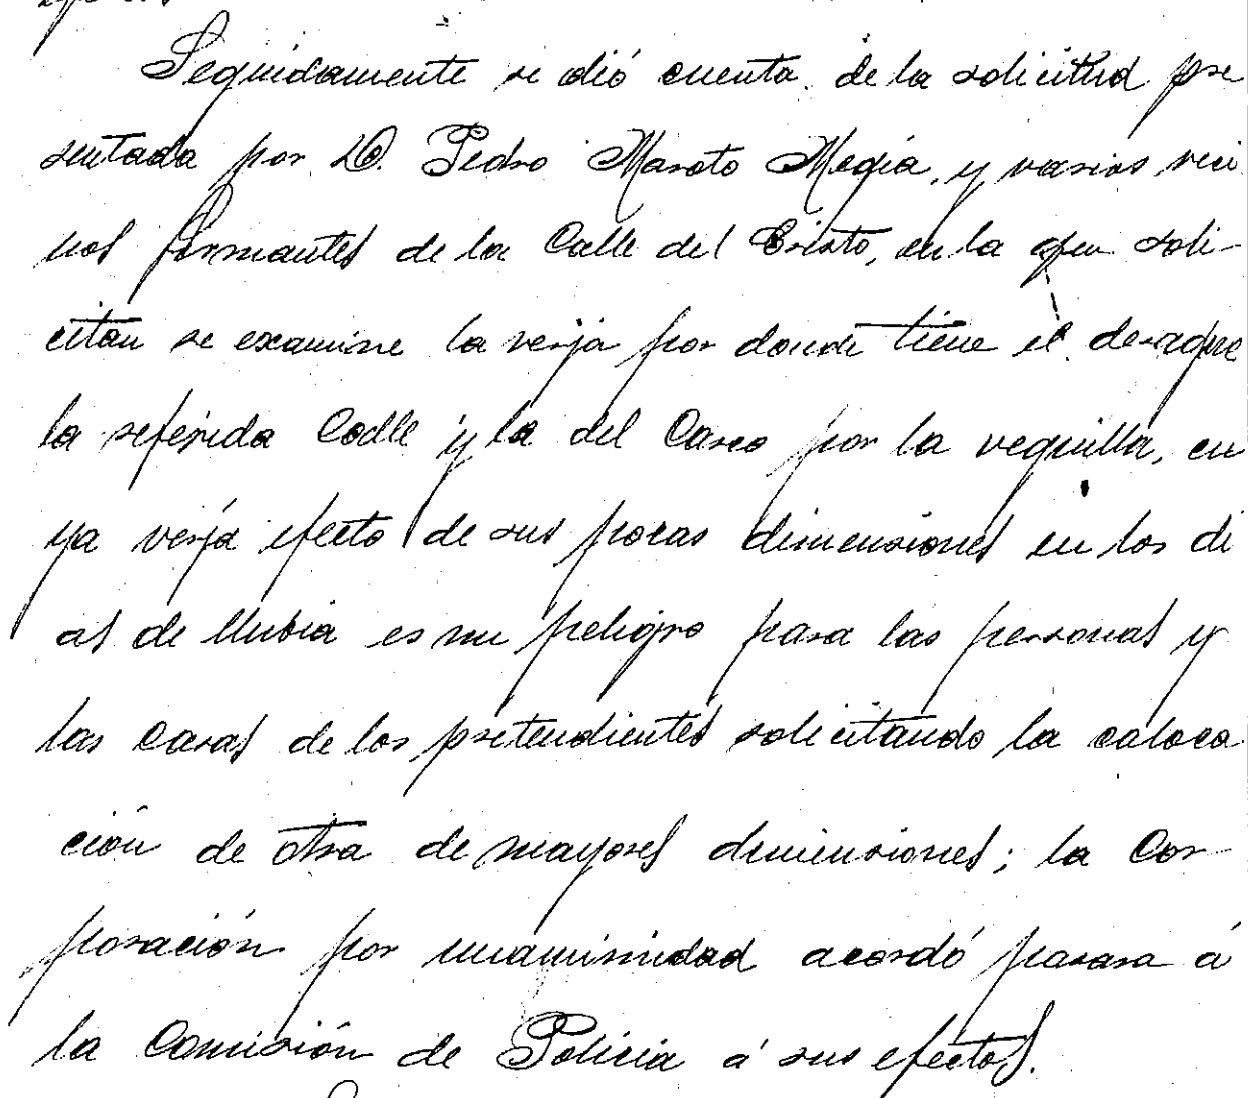 Seguidamente se dió cuenta de la solicitud pre
sentada por D. Pedro Maroto Megía, y varios veci
nos firmantes de la Calle del Cristo, en la que soli-
citan se examine la verja por donde tiene el desagüe
la referida Calle y la del Caseo por la veguilla, cu
ya verja efecto de sus pocas dimensiones en los di
as de llubia es un peligro para las personas y
las casas de los pretendientes solicitando la coloca
ción de otra de mayores dimensiones; la Cor-
poración por unanimidad acordó pasara á
la Comisión de Policia á sus efectos.